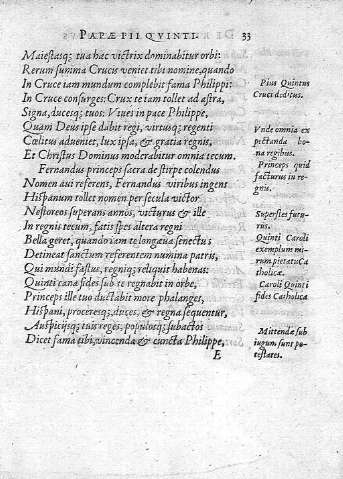 PAPÆ PII QVINTI. 33
Maiestasq; tua hac victrix dominabitur orbi:
Rerum summa Crucis veniet tibi nomine, quando
In Cruce tam mundum complebit fama Philippi:
In Cruce consurges: Crux te tam tollet ad astra,
Signa, ducesq; tuos: Viues in pace Philippe,
Quam Deus ipse dabit regi, virtusq; regenti
Cœlitus adueniet, lux ipsa, & gratia regnis,
Et Christus Dominus moderabitur omnia tecum.
Fernandus princeps sacra de stirpe colendus
Nomen aui referens, Fernandus viribus ingens
Hispanum tollet nomen per secula victor
Nestoreos superans annos, victurus & ille
In regnis tecum, satis spes altera regni
Bella geret, quando iam te longæua senectus
Detineat sanctum referentem numina patris,
Qui mundi fastus, regniq; reliquit habenas:
Quinti cana fides sub te regnabit in orbe,
Princeps ille tuo ductabit more phalanges,
Hispani, proceresq; duces, & regna sequentur,
Auspicijsq; tuis reges, populosq; subactos
Dicet fama tibi, vincenda & cuncta Philippe,
E
Pius Quintus
Cruci deditus.
Vnde omnia ex
pectanda bo-
na regibus.
Princeps quid
facturus in re-
gnis.
Superstes futu-
rus.
Quinti Caroli
exemplum mi-
rum pietatis Ca
tholicæ.
Caroli Quinti
fides Catholica
Mittendæ sub
iugum sunt po-
testates.